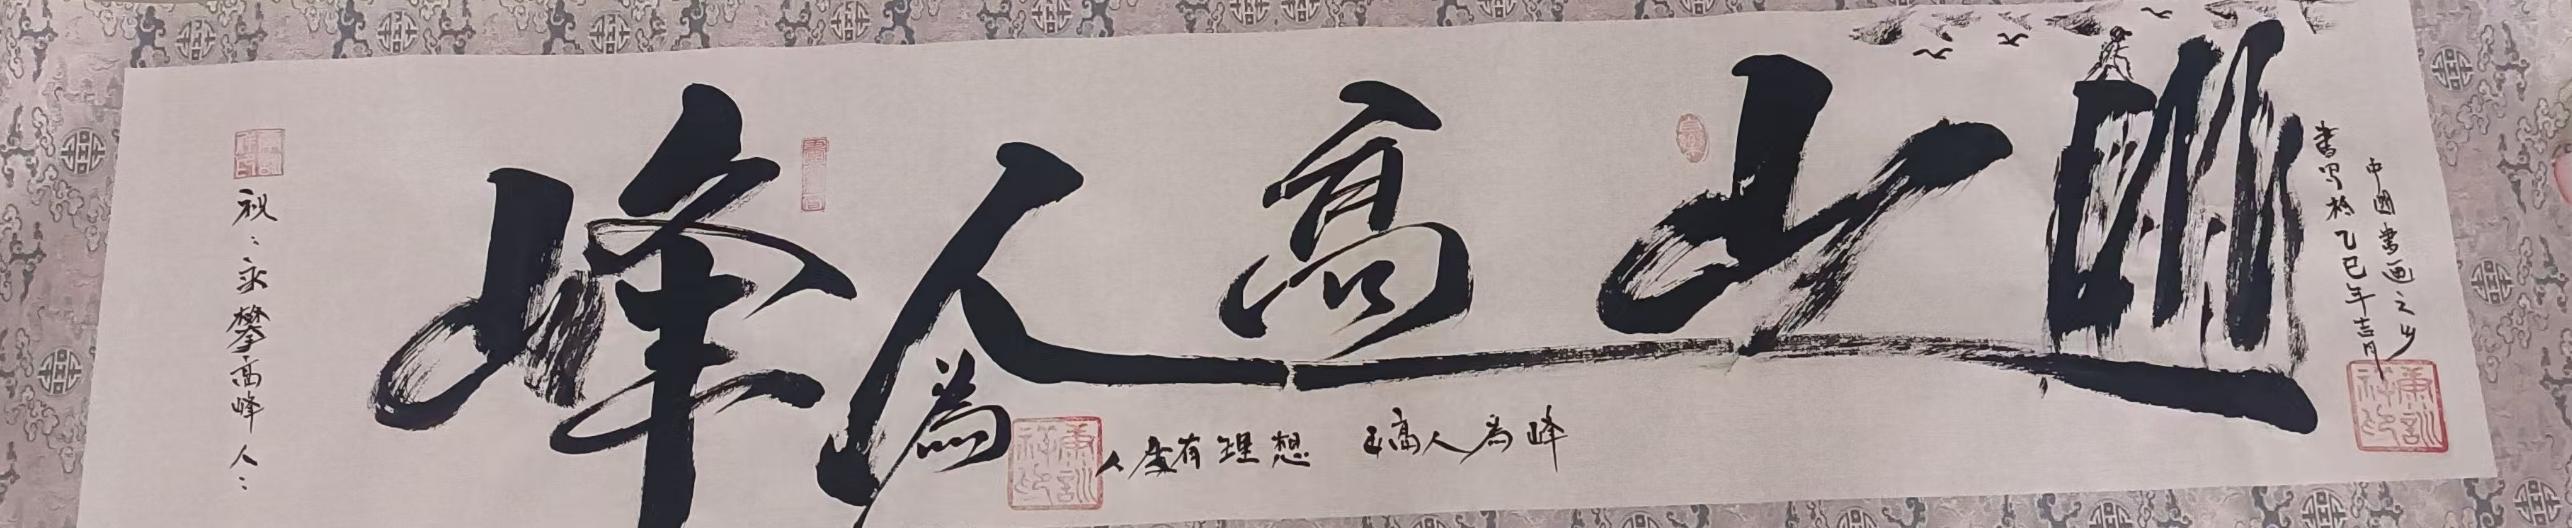 中國書画之乡
書写於乙巳年吉月
山高人為峰
人生有理想 山高人為峰
祝：永攀高峰人：